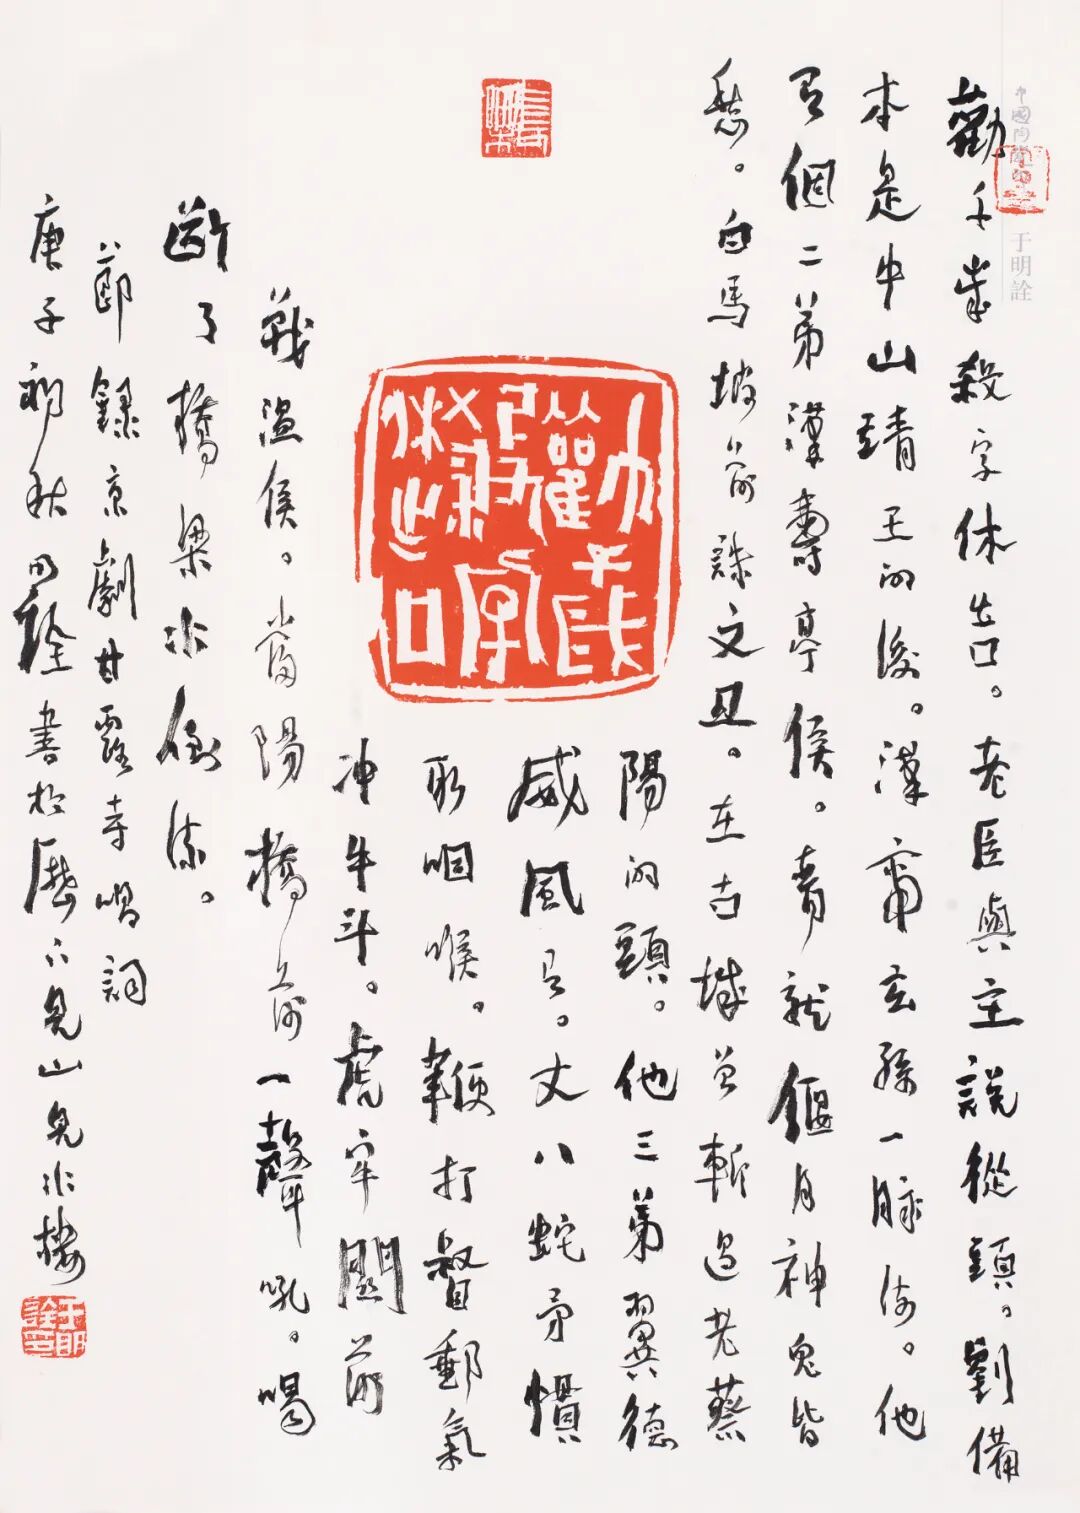 于明詮
勸千歲殺字休出口。老臣與主說從頭。劉備
本是中山靖王的後。漢帝玄孫一脉流。他
有個二弟漢壽亭侯。青龍偃月神鬼皆
愁。白馬坡前誅文丑。在古城曾斬過老蔡
陽的頭。他三弟翼德
威風有。丈八蛇矛慣
取咽喉。鞭打督郵氣
冲牛斗。虎牢關前
戰溫侯。當陽橋前一聲吼。喝
斷了橋梁水倒流。
節錄京劇甘露寺唱詞
庚子初秋明詮書於歷下見山見水樓
勸千歲
殺字
休出口
于明
詮印